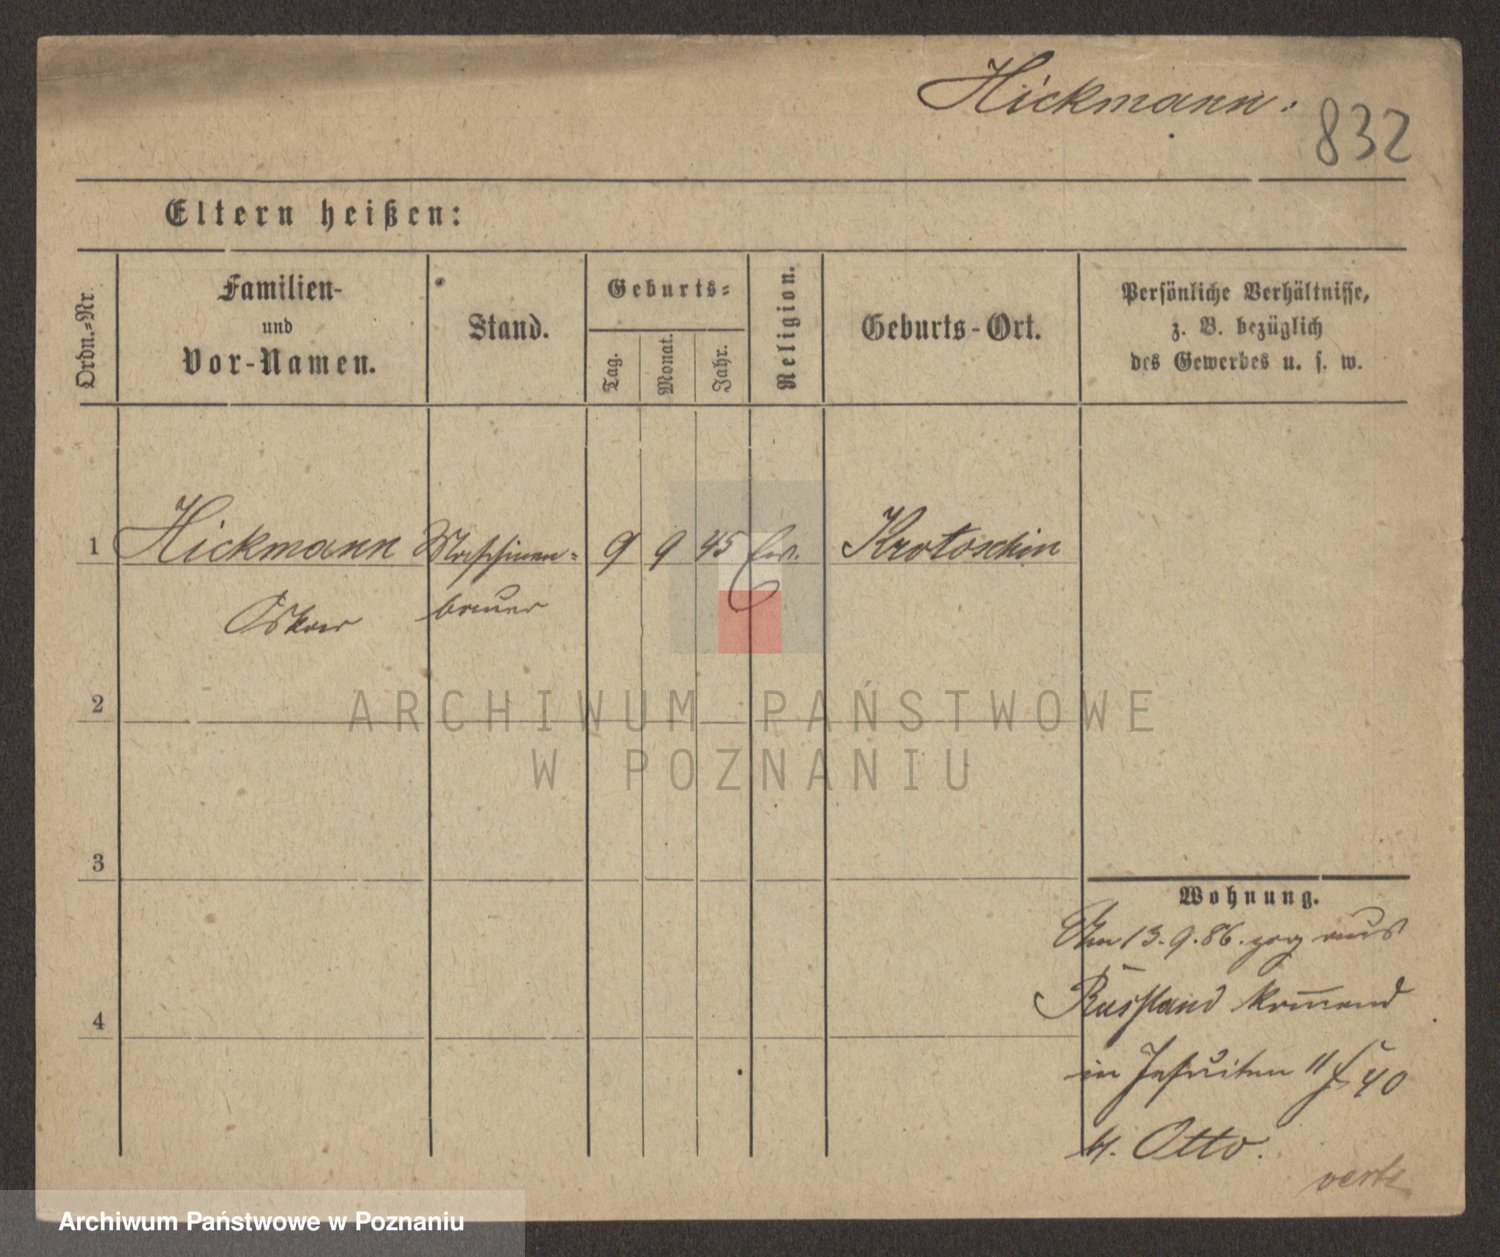 Hickmann.
832
Eltern heißen:
Ordn.=Nr.
Familien-
und
Vor-Namen.
Stand.
Geburts=
Tag.
Monat.
Jahr.
Religion.
Geburts-Ort.
Persönliche Verhältnisse,
z. B. bezüglich
des Gewerbes u. s. w.
1 Hickmann Maschinen= 9 9 45 Ev. Krotoschin
Oskar bauer
2
3
4
Wohnung.
13.9.86. zog aus
Russland kom̅end
in Jesuiten 11
b. Otto.
verte
ARCHIWUM PAŃSTWOWE
W POZNANIU
Archiwum Państwowe w Poznaniu